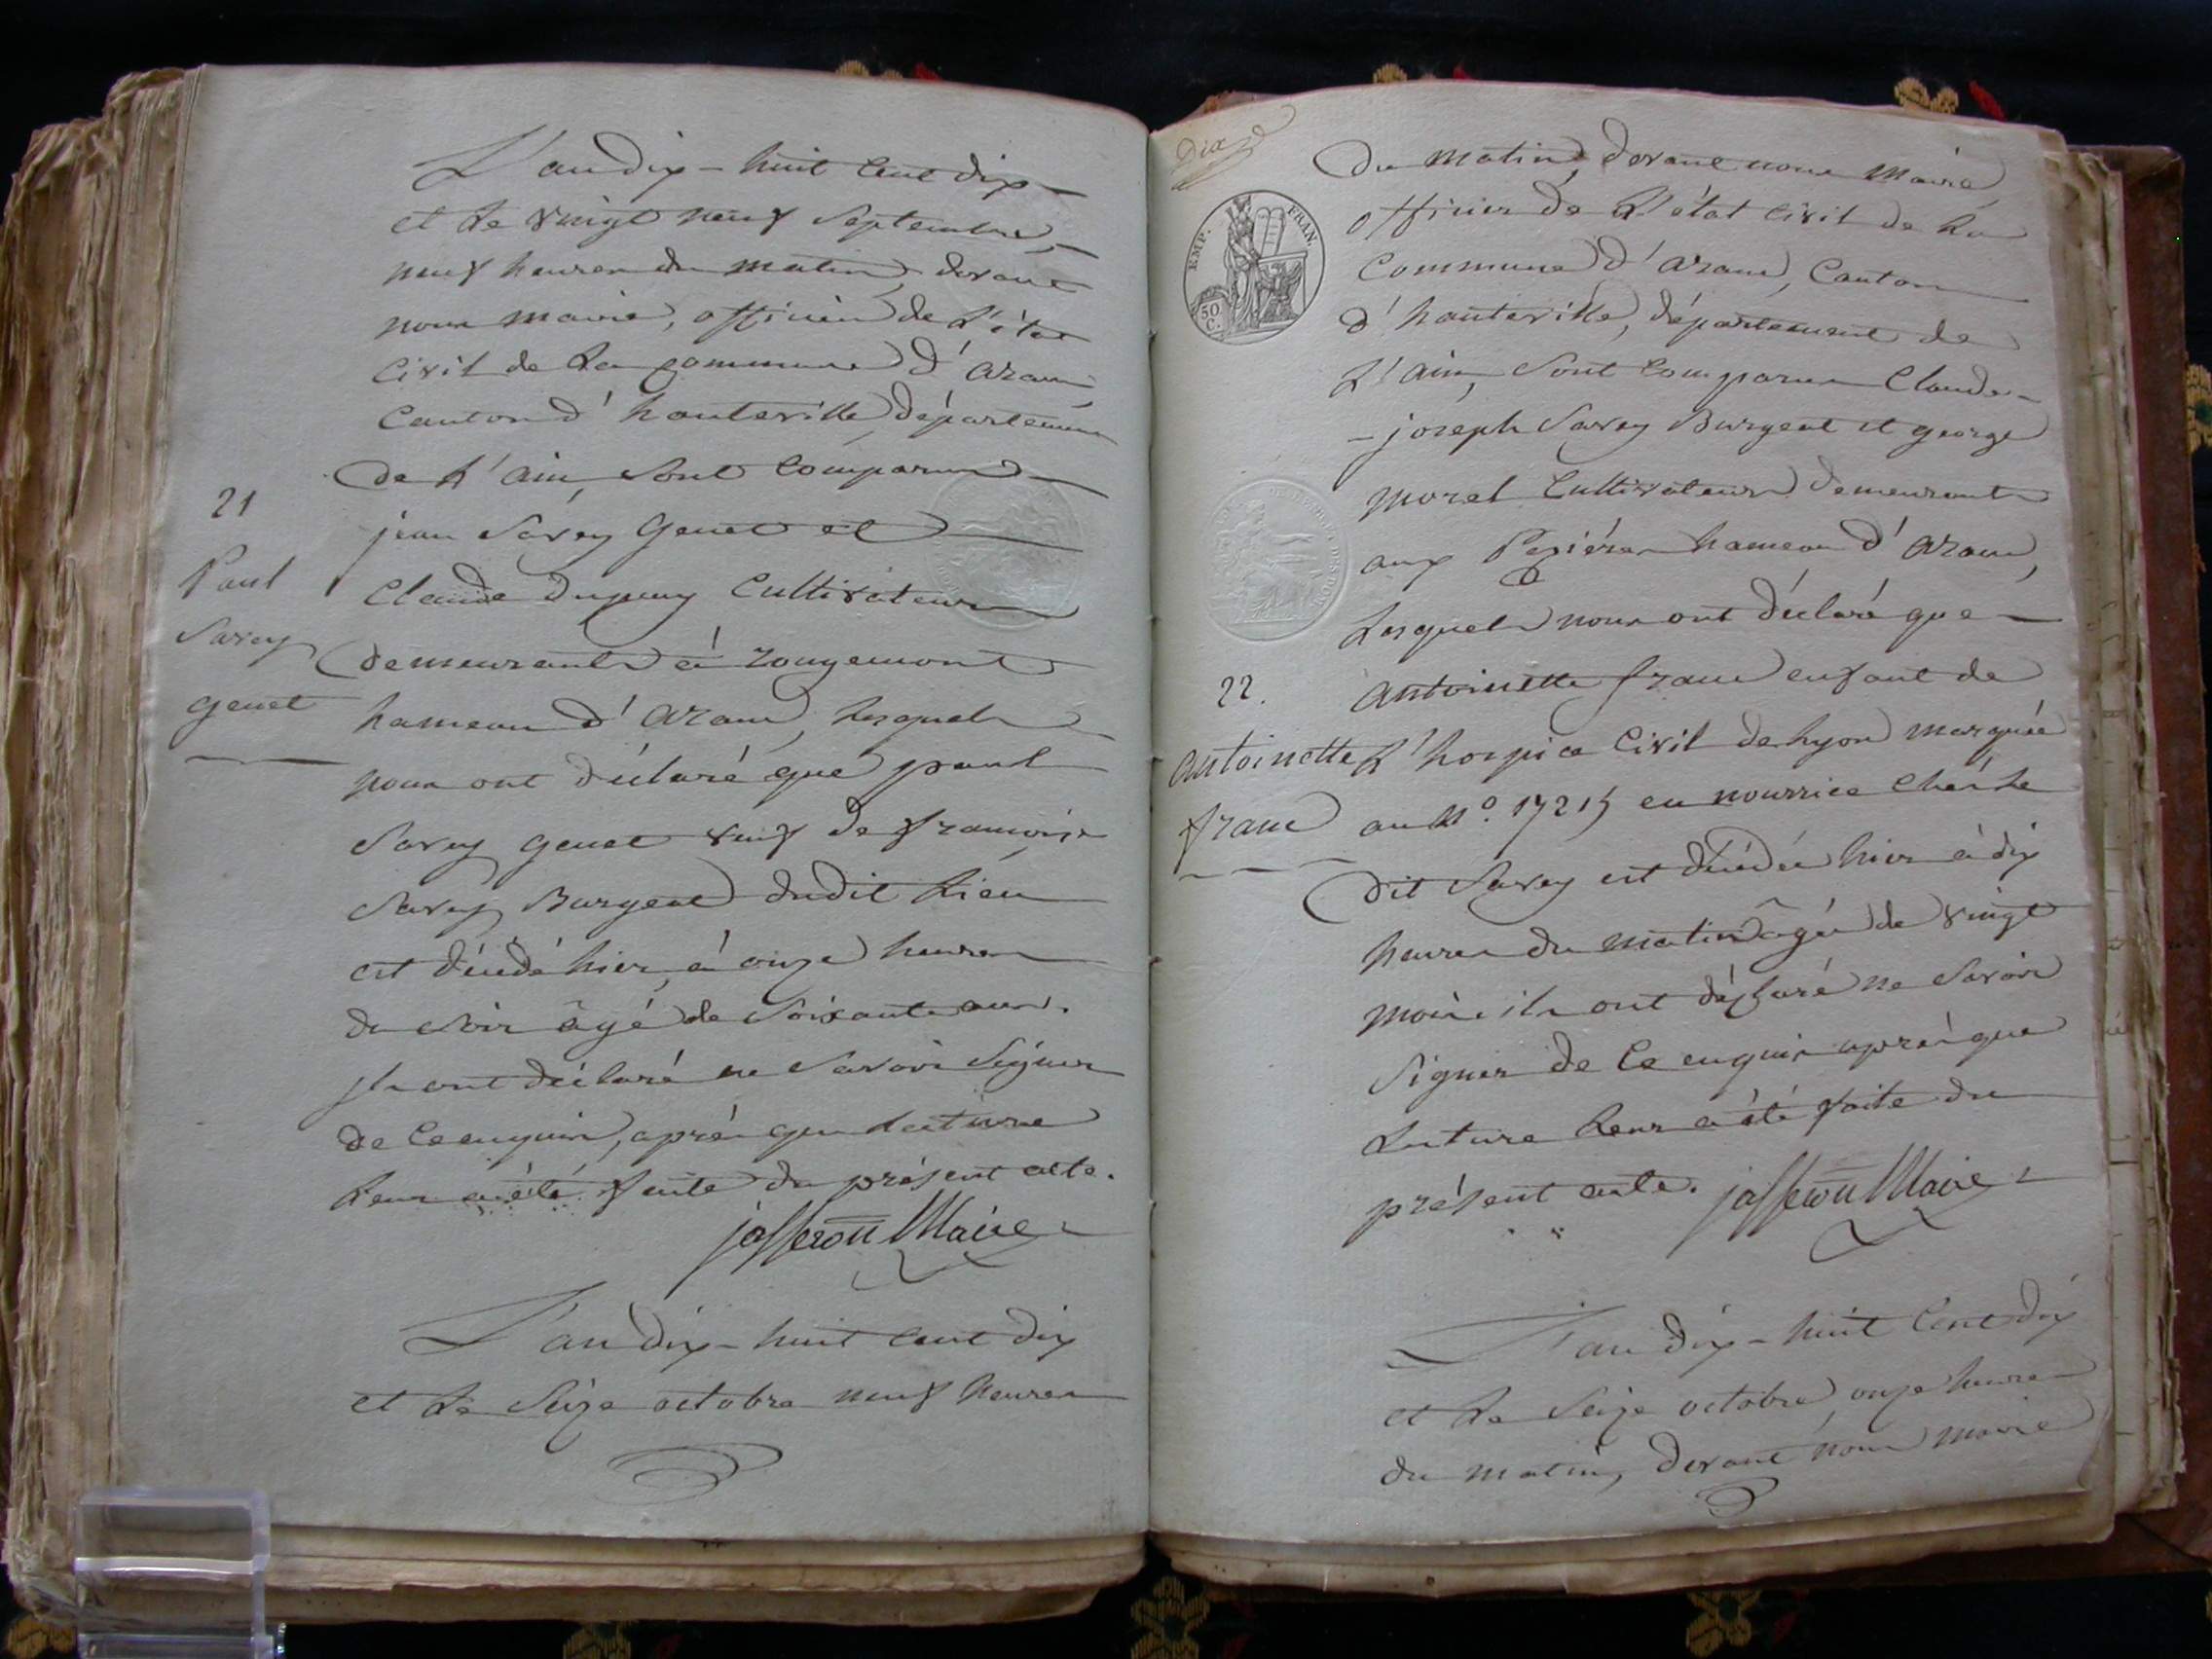 L'an dix-huit cent dix
et le vingt neuf Septembre,
neuf heures du matin, devant
nous maire, officier de L'état
civil de la commune d'aranc,
canton d'hauteville, département
de l'ain, sont comparus
jean Savey Genet et
21
Claude Dupuy Cultivateurs
Paul
demeurants à rougemont
Savey
hameau d'aranc, lesquels
genet
nous ont déclaré que paul
Savey genet veuf de françoise
Savey Burgeat dudit Lieu
est décédé hier, à onze heures
du soir âgé de Soixante ans.
ils ont déclaré ne savoir signer
de ce enquis, après que lecture
leur a été faite du présent acte.
jasseron Maire
L'an dix-huit cent dix
et le seize octobre neuf heures
Dix
EMP. FRAN.
50 C.
du matin, devant nous Maire
officier de L'état civil de la
Commune d'aranc, Canton
d'hauteville, département de
l'ain, sont comparus Claude-
-joseph Savey Burgeat et george
morel Cultivateurs demeurants
aux hameau d'aranc,
lesquels nous ont déclaré que
22.
antoinette franc enfant de
antoinette
l'hospice Civil de lyon marquée
franc
au N°. 17215 en nourrice chés le
dit Savey est décédée hier à dix
heures du matin âgée de vingt
mois. ils ont déclaré ne savoir
signer de ce enquis après que
lecture leur a été faite du
présent acte. jasseron Maire
L'an dix-huit cent dix
et le seize octobre, onze heures
du matin, devant nous maire